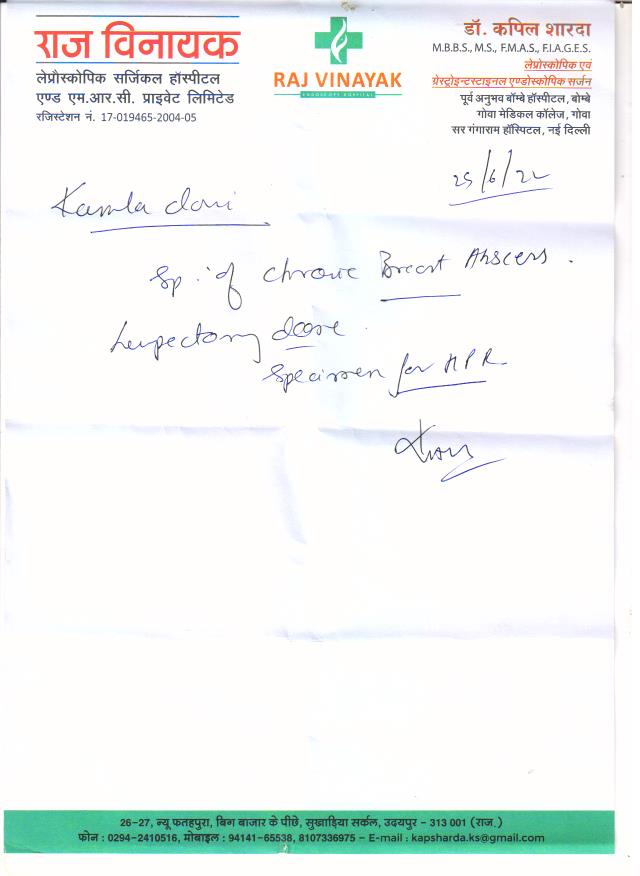 राज विनायक
लेप्रौस्कोपिक सर्जिकल हॉस्पीटल
एण्ड एम.आर.सी. प्राइवेट लिमिटेड
रजिस्टेशन नं. 17-019465-2004-05
RAJ VINAYAK
ENDOSCOPY HOSPITAL
डॉ. कपिल शारदा
M.B.B.S., M.S., F.M.A.S., F.I.A.G.E.S.
लेप्रौस्कोपिक एवं
ग्रेस्ट्रोइन्टस्टाइनल एण्डोस्कोपिक सर्जन
पूर्व अनुभव बॉम्बे हॉस्पीटल, बोम्बे
गोवा मेडिकल कॉलेज, गोवा
सर गंगाराम हॉस्पिटल, नई दिल्ली
25/6/22
Kamla
Sp. of chronic Breast Abscess.
done.
Specimen for HPR
26-27, न्यू फतहपुरा, बिग बाजार के पीछे, सुखाड़िया सर्कल, उदयपुर - 313 001 (राज.)
फोन : 0294-2410516, मोबाइल : 94141-65538, 8107336975 – E-mail : kapsharda.ks@gmail.com